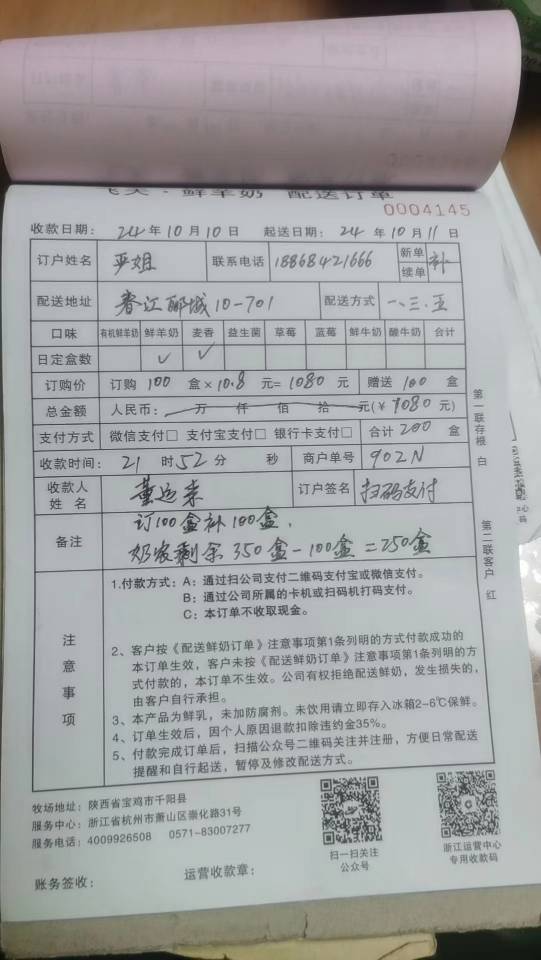 鲜羊奶 配送订单
0004145
收款日期: 24 年 10 月 10 日 起送日期: 24 年 10 月 11 日
订户姓名 严姐 联系电话 18868421666 新单 续单 补
配送地址 春江郦城10-701 配送方式 一、三、五
口味 有机鲜羊奶 鲜羊奶 麦香 益生菌 草莓 蓝莓 鲜牛奶 酸牛奶 合计
日定盒数 ✓ ✓
订购价 订购 100 盒×10.8 元=1080 元 赠送 100 盒
总金额 人民币: 万 仟 佰 拾 元(¥ 1080元)
支付方式 微信支付□ 支付宝支付□ 银行卡支付□ 合计 200 盒
收款时间: 21 时 52 分 秒 商户单号 902N
收款人姓名 董 订户签名 扫码支付
备注 订100盒补100盒,
剩余 350盒-100盒=250盒
注意事项
1.付款方式: A: 通过扫公司支付二维码支付宝或微信支付。
B: 通过公司所属的卡机或扫码机打码支付。
C: 本订单不收取现金。
2、客户按《配送鲜奶订单》注意事项第1条列明的方式付款成功的
本订单生效,客户未按《配送鲜奶订单》注意事项第1条列明的方
式付款的,本订单不生效。公司有权拒绝配送鲜奶,发生损失的,
由客户自行承担。
3、本产品为鲜乳,未加防腐剂。未饮用请立即存入冰箱2-6℃保鲜。
4、订单生效后,因个人原因退款扣除违约金35%。
5、付款完成订单后,扫描公众号二维码关注并注册,方便日常配送
提醒和自行起送,暂停及修改配送方式。
第一联存根 白
第二联客户 红
牧场地址: 陕西省宝鸡市千阳县
服务中心: 浙江省杭州市萧山区崇化路31号
服务电话: 4009926508 0571-83007277
扫一扫关注
公众号
浙江运营中心
专用收款码
账务签收: 运营收款章: